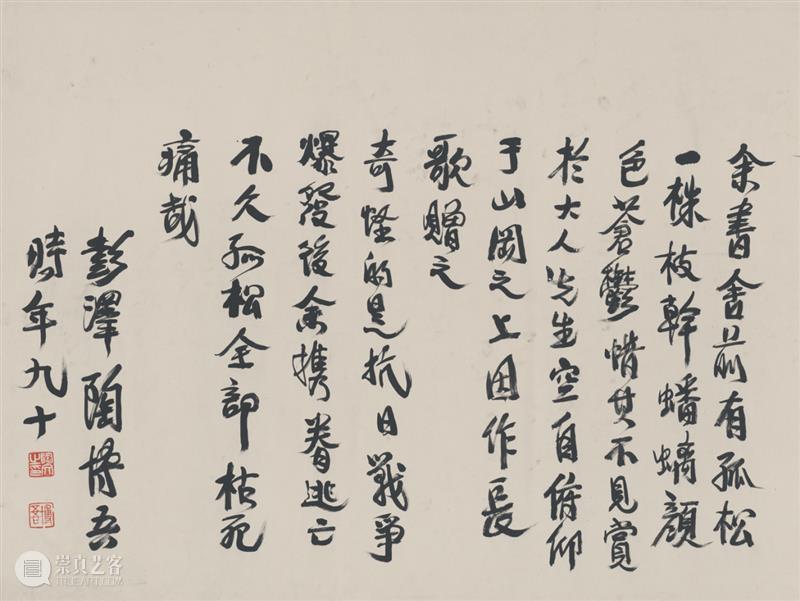 余書舍前有孤松
一株枝幹蟠螭顏
色蒼鬱惜其不見賞
於大人先生空自俯仰
于山岡之上因作長
歌贈之
奇怪的是抗日戰爭
爆發後余携眷逃亡
不久孤松全部枯死
痛哉
彭澤陶博吾
時年九十
崇真艺客
TRUEART.COM